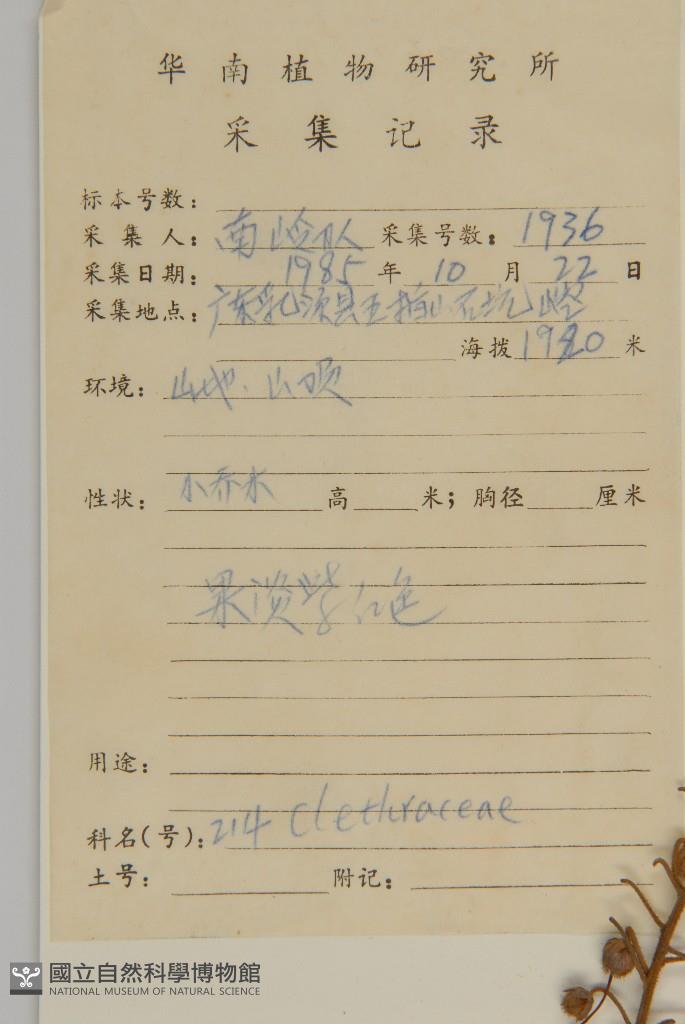 华南植物研究所
采集记录
标本号数：
采集人：南岭队 采集号数：1936
采集日期：1985年10月22日
采集地点：广东乳源县五指山石坑崆
海拨1920米
环境：山地、山顶
性状：小乔木 高 米；胸径 厘米
果淡紫红色
用途：
科名(号)：214 Clethraceae
土号： 附记：
國立自然科學博物館
NATIONAL MUSEUM OF NATURAL SCIENCE